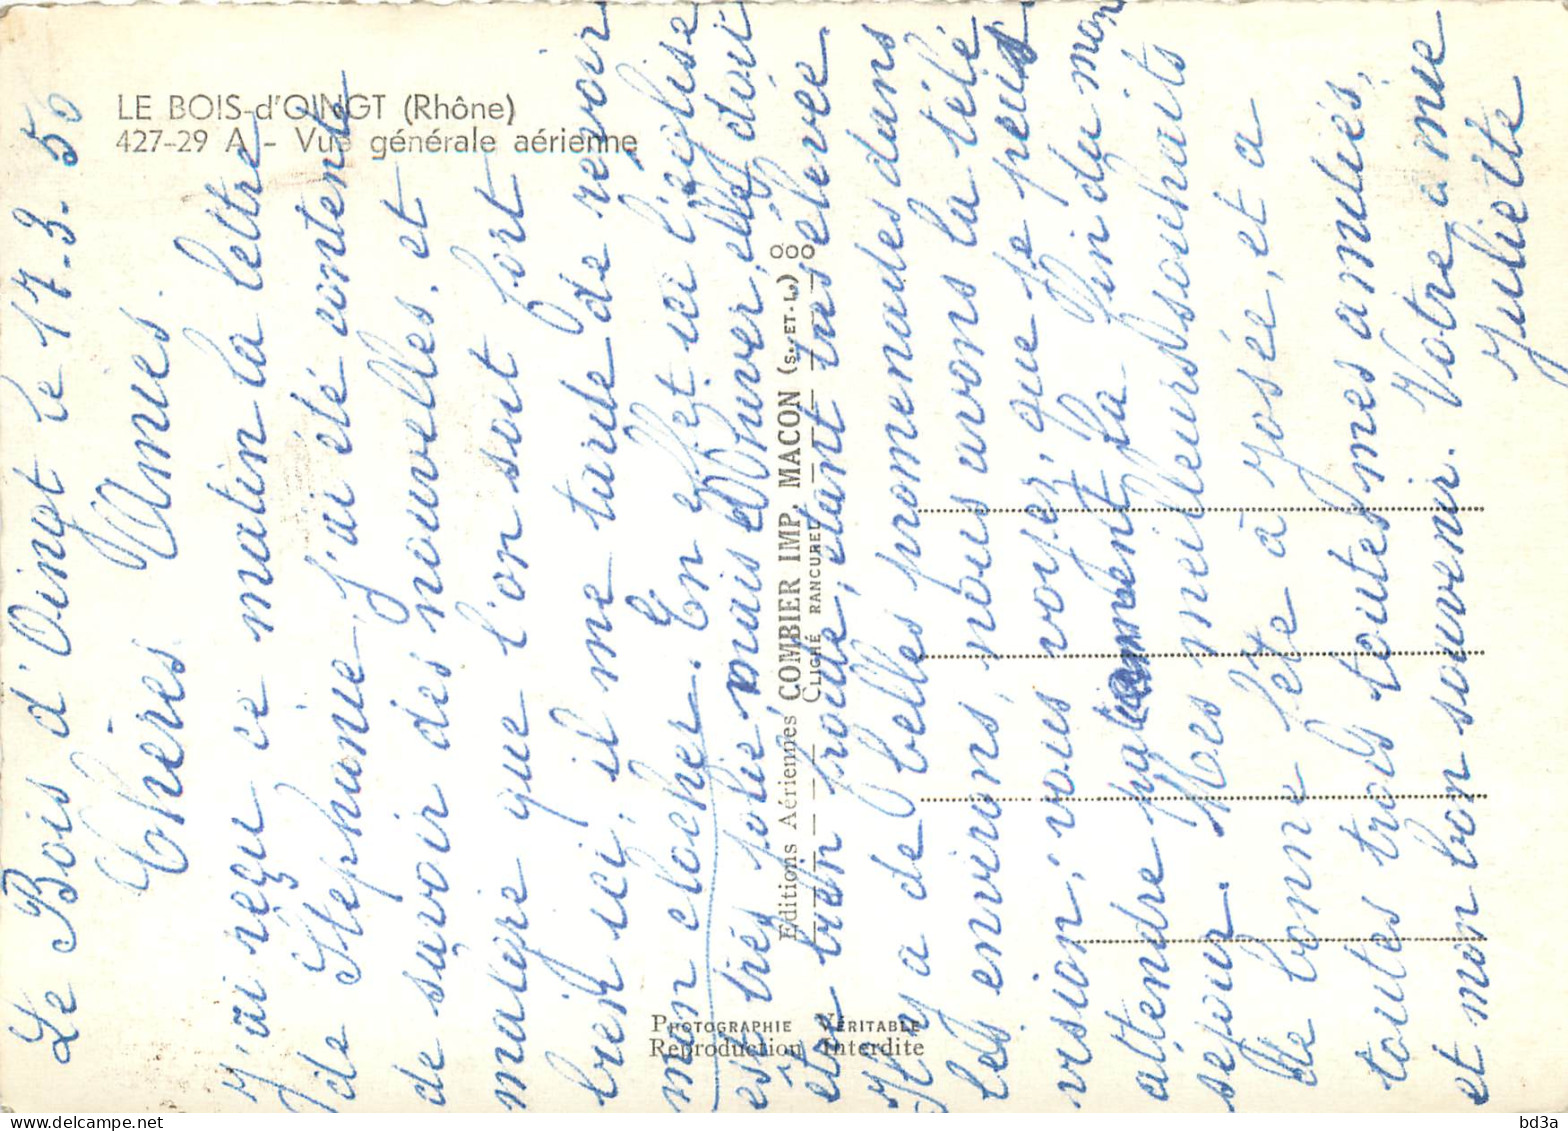 LE BOIS-d'OINGT (Rhône)
427-29 A - Vue générale aérienne
Le Bois d'Oingt le 17.3.50
Chères Amies.
J'ai reçu ce matin la lettre
de Stéphanie, j'ai été contente
de savoir des nouvelles, et
malgre que l'on soit fort
bien ici, il me tarde de revoir
mon clocher. En effet ici l'église
est très jolie mais l'hiver, elle doit
être bien froide, étant très élevée.
Il y a de belles promenades dans
les environs, nous avons la télé
vision, vous voyez, que je peux
attendre patiemment la fin du mon
sejour. Mes meilleurs souhaits
de bonne fête à José, et a
toutes trois toutes mes amitiés,
et mon bon souvenir. Votre amie
Juliette
Editions Aériennes COMBIER IMP. MACON (S.-ET-L.)
CLICHÉ RANCUREL
PHOTOGRAPHIE VÉRITABLE
Reproduction Interdite
delcampe.net
bd3a